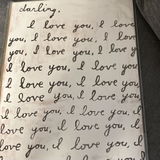 darling,
I love you, I love
you, I love you, I love
you, I love you, I love y
I love you, I love you,
I love you, I love you,
I love you, I love you
I love you, I love you
I love you, I love you
love you, I love you, I
love you, I love you, I
love you, I love you